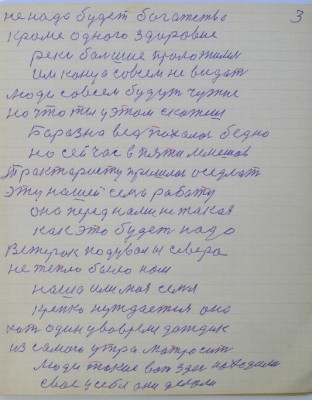 3
не надо будет богатство
кроме одного здоровие
реки большие проложили
им конца совсем не видат
люди совсем будут чужие
но что ты у этом скажиш
Баразна ведь пахалас бедно
но сей час в пяти лемешов
трактаристу пришлос оседлат
эту нашей семь работу
она перед нами не такая
как это будет надо
Ветерок подувал ы севера
не тепло было нам
наша илимая семя
крепко нуждается она
хот один у вовремя дождык
из самого утра матросит
люди такие вот здес находили
свае у себя они делали